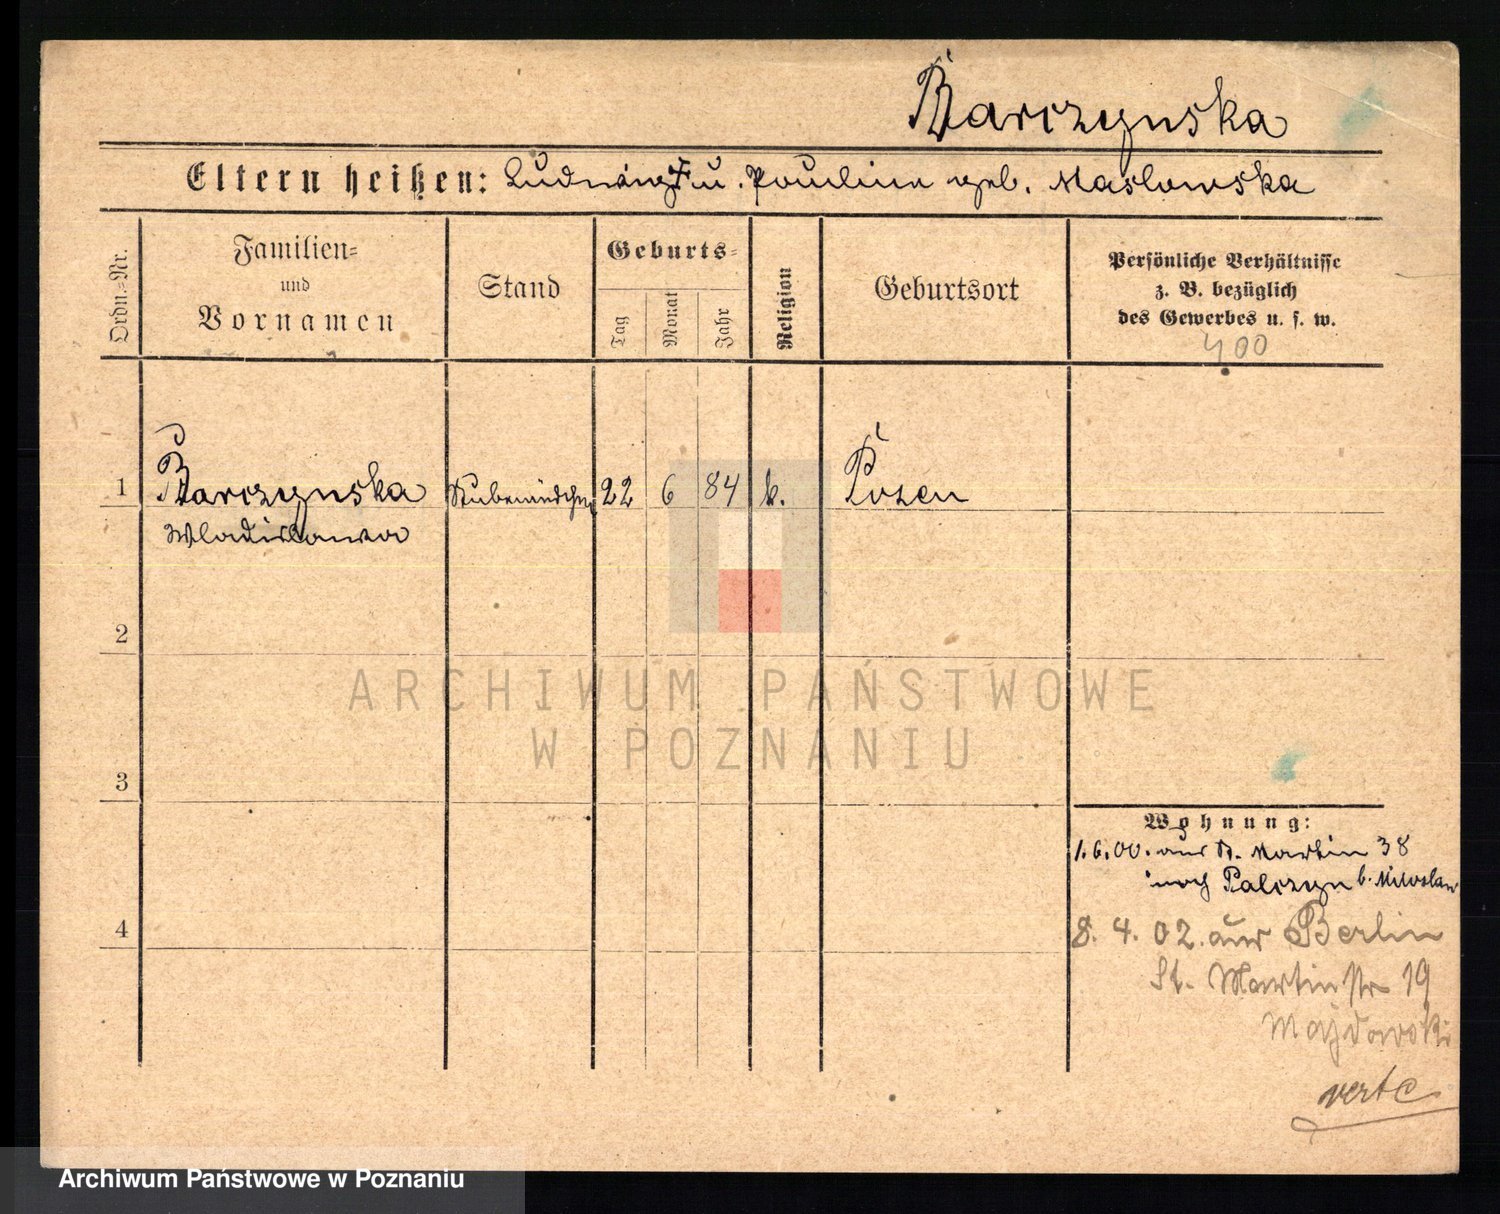 Barczynska
Eltern heißen: Ludwig † u. Paulina geb. Maslowska
Ordn.-Nr.
Familien-
und
Vornamen
Stand
Geburts-
Tag
Monat
Jahr
Religion
Geburtsort
Persönliche Verhältnisse
z. B. bezüglich
des Gewerbes u. s. w.
400
1 Barczynska Stubenmädchen 22 6 84 k. Posen
Wladislawa
2
ARCHIWUM PAŃSTWOWE
W POZNANIU
3
Wohnung:
1.6.00. aus St. Martin 38
nach Palczyn b. Miloslaw
4
8. 4. 02. aus Berlin
St. Martinstr 19
Majdowski
verte
Archiwum Państwowe w Poznaniu